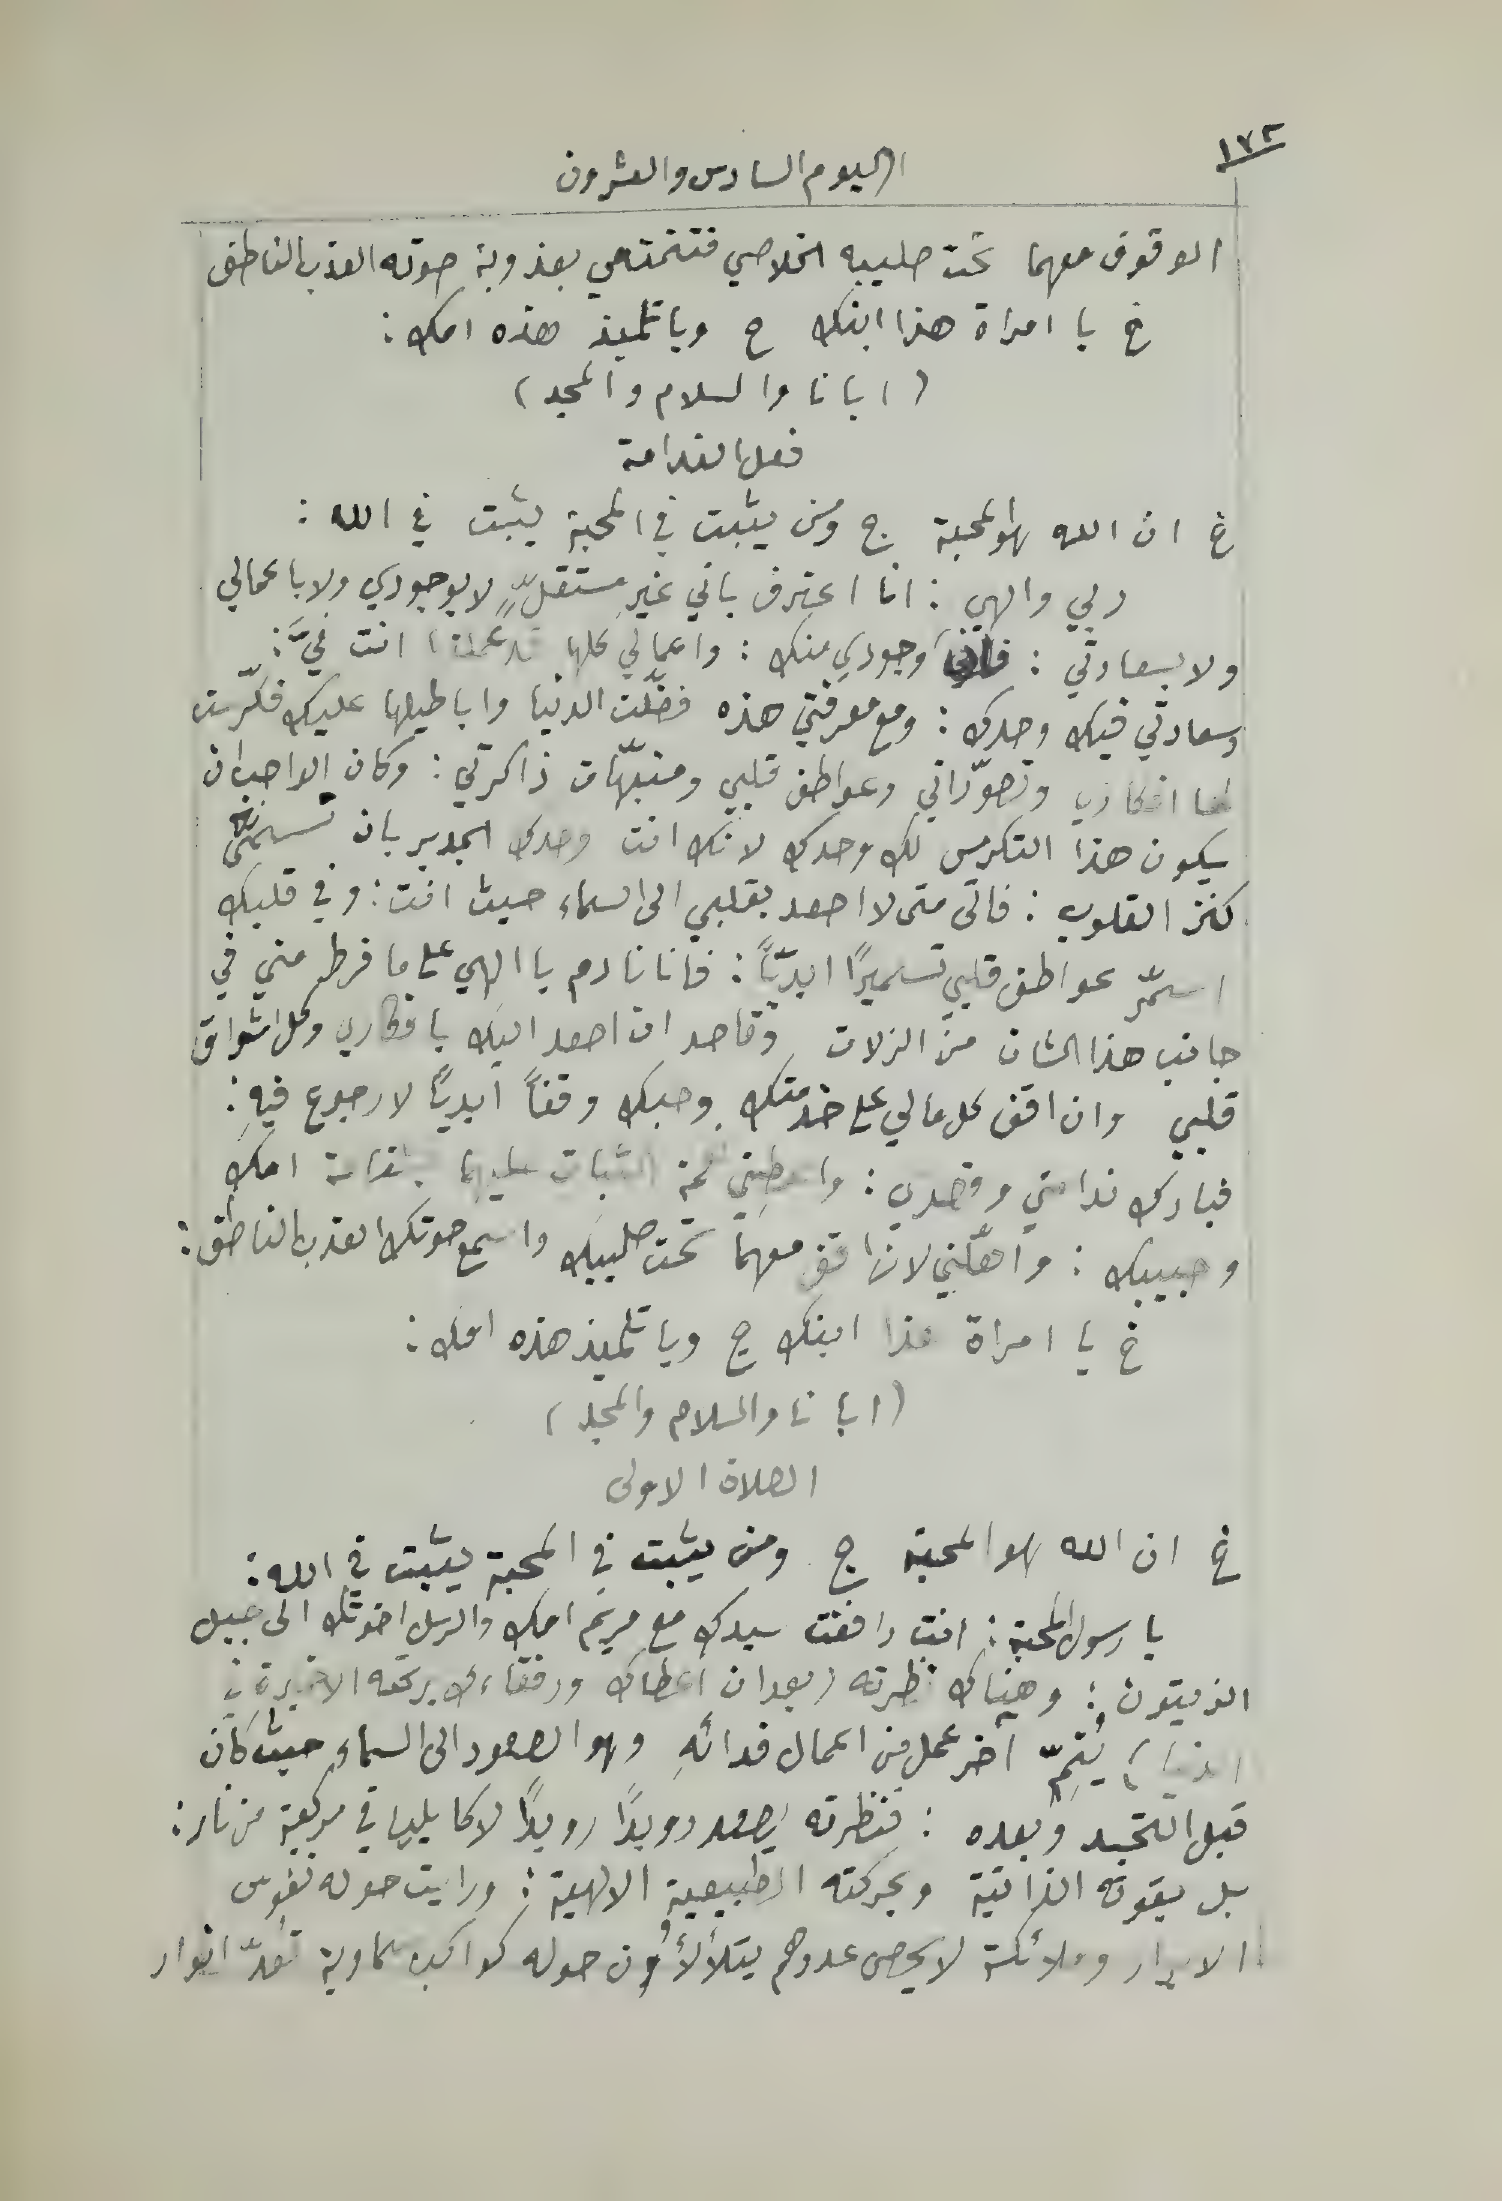 ١٧٢
اليوم السادس والعشرون
الوقوف معهما تحت صليبه الخلاصي فتتمتعي بعذوبة صوته العذب الناطق
خ يا امراة هذا ابنك ج ويا تلميذ هذه امك :
( ابانا والسلام والمجد )
فعل الندامة
خ ان الله هو المحبة ج ومن يثبت في المحبة يثبت في الله :
ربي والهي : انا اعترف باني غير مستقلٍّ لا بوجودي ولا باعمالي
ولا بسعادتي : وجودي منك : واعمالي كلها انت فيَّ :
وسعادتي فيك وحدك : ومع معرفتي هذه فضّلت الدنيا واباطيلها عليك فكرّست
لها افكاري وتصوّراتي وعواطف قلبي ومنبّهات ذاكرتي : وكان الواجب ان
يكون هذا التكريس لك وحدك لانك انت وحدك الجدير بان
كنز القلوب : فالى متى لا اصعد بقلبي الى السماء حيث انت : وفي قلبك
اسمّر عواطف قلبي تسميرًا ابديًّا : فانا نادم يا الهي على ما فرط مني في
جانب هذا الشان من الزلات وقاصد ان اصعد اليك بافكاري وكل اشواق
قلبي وان اقف كل مالي على خدمتك وحبك وقفًا ابديًّا لا رجوع فيه :
فبارك ندامتي وقصدي : واعطني الثبات عليهما بشفاعة امك
وحبيبك : واهّلني لان اقف معهما تحت صليبك واسمع صوتك العذب الناطق :
خ يا امراة هذا ابنك ج ويا تلميذ هذه امك :
( ابانا والسلام والمجد )
الصلاة الاولى
خ ان الله هو المحبة ج ومن يثبت في المحبة يثبت في الله :
يا رسول المحبة : انت رافقت سيدك مع مريم امك والرسل اخوتك الى جبل
الزيتون : وهناك نظرته ( بعد ان اعطاك ورفقاءك بركته الاخيرة في
الدنيا ) يُتمّ آخر عمل من اعمال فدائهِ وهو الصعود الى السماء حيث كان
قبل التجسد وبعده : فنظرته يصعد رويدًا رويدًا لا كايليا في مركبة من نار :
بل بقوته الذاتية وبحركته الطبيعية الالهية : ورايت حوله نفوس
الابرار وملائكة لا يحصى عددهم يتلألأون حوله كواكب سماوية تمدّ انوار